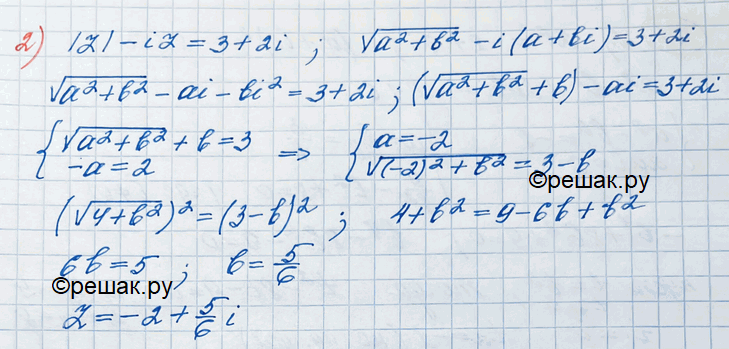 2) |Z| - iZ = 3 + 2i ; √(a² + b²) - i(a + bi) = 3 + 2i
√(a² + b²) - ai - bi² = 3 + 2i ; (√(a² + b²) + b) - ai = 3 + 2i
{ √(a² + b²) + b = 3 { a = -2
-a = 2 => √((-2)² + b²) = 3 - b
©решак.ру
(√(4 + b²))² = (3 - b)² ; 4 + b² = 9 - 6b + b²
6b = 5 ; b = 5/6
©решак.ру
Z = -2 + 5/6 i